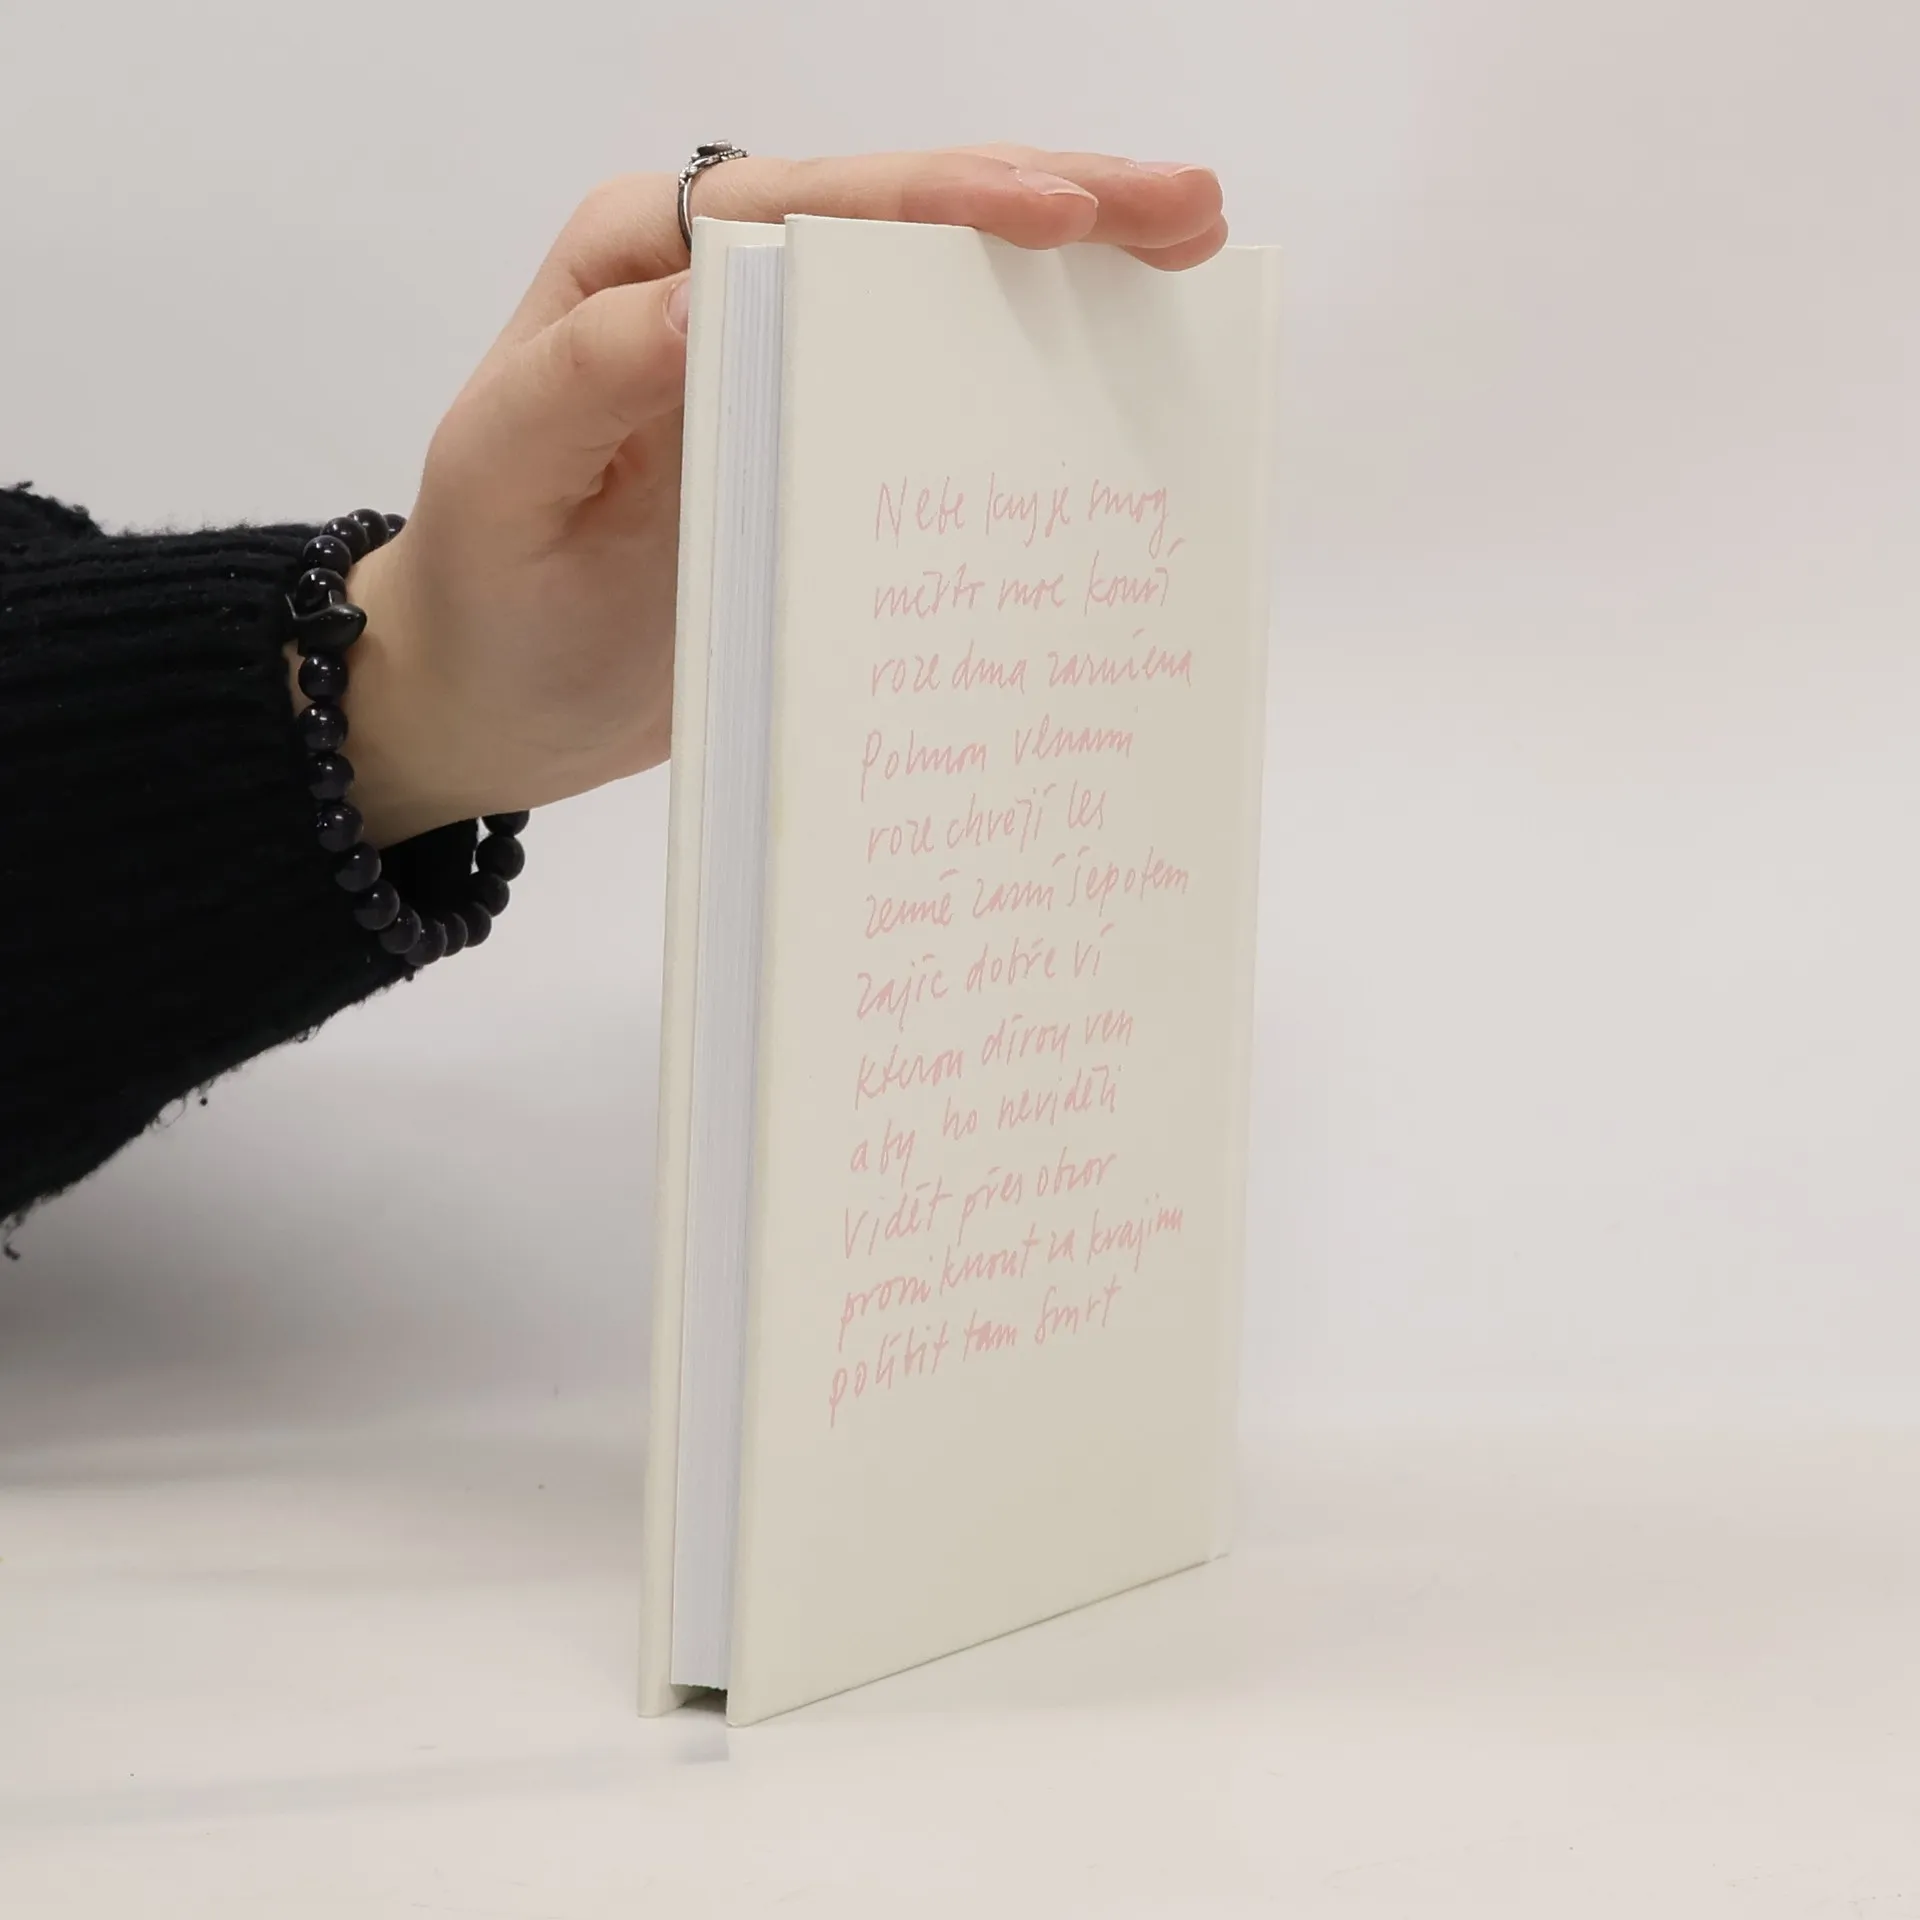 Nebe kryje smog
město mé kouří
roze dma zarmíena
Pohnou vlnami
rozechvějí les
země zarní šepotem
zajíc dobře ví
kterou dírou ven
aby ho neviděli
Vidět přes obzor
proniknout za krajinu
políbit tam smrt